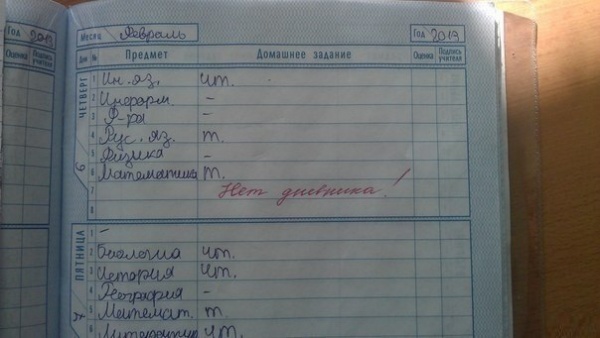 Год 2013
Месяц Февраль
Год 2013
Оценка Подпись учителя
Дни № Предмет Домашнее задание Оценка Подпись учителя
ЧЕТВЕРГ
6
1 Ин. яз. чт.
2 Информ. -
3 Ф-ра -
4 Рус. яз. т.
5 Физика -
6 Математика т.
7 Нет дневника!
8
ПЯТНИЦА
7
1 -
2 Биология чт.
3 История чт.
4 География -
5 Математ. т.
6 Литература чт.